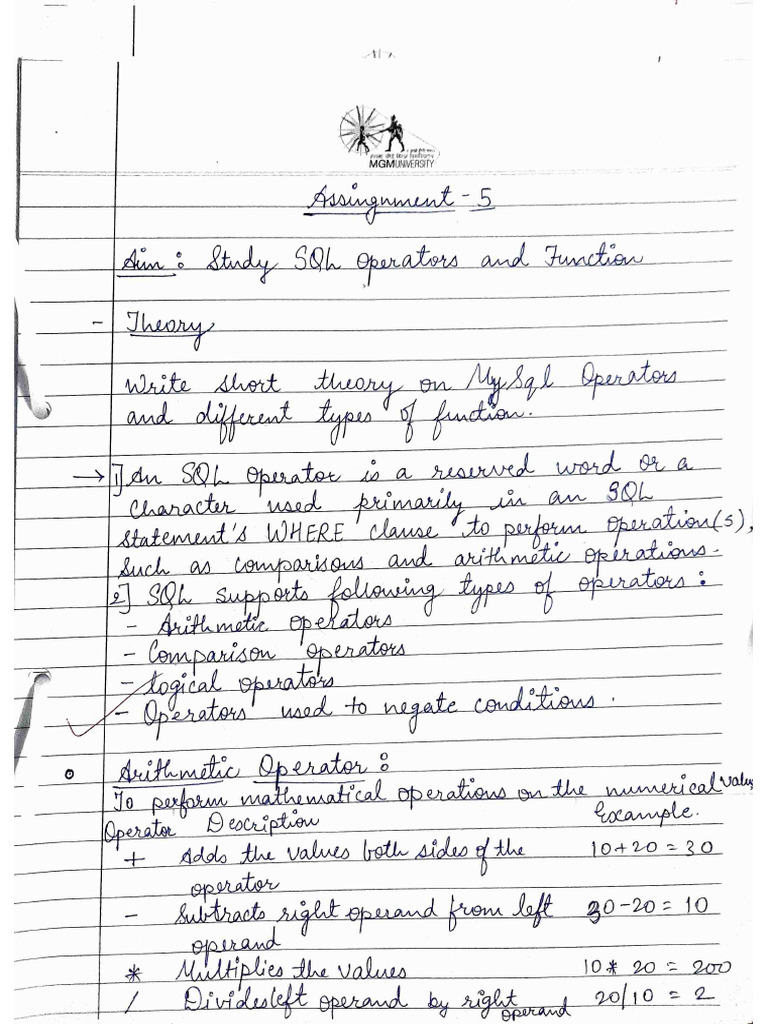 MGMUNIVERSITY
Assingnment - 5
Aim : Study SQL operators and Function
- Theory
Write short theory on MySql Operators
and different types of function.
→ 1] An SQL operator is a reserved word or a
character used primarily in an SQL
statement's WHERE clause to perform operation(s),
such as comparisons and arithmetic operations.
2] SQL supports following types of operators :
- Arithmetic operators
- Comparison operators
- Logical operators
- Operators used to negate conditions.
Arithmetic Operator :
To perform mathematical operations on the numerical
Operator Description Example.
+ Adds the values both sides of the 10+20 = 30
operator
- Subtracts right operand from left 30-20 = 10
operand
* Multiplies the values 10 * 20 = 200
/ Divides left operand by right operand 20/10 = 2